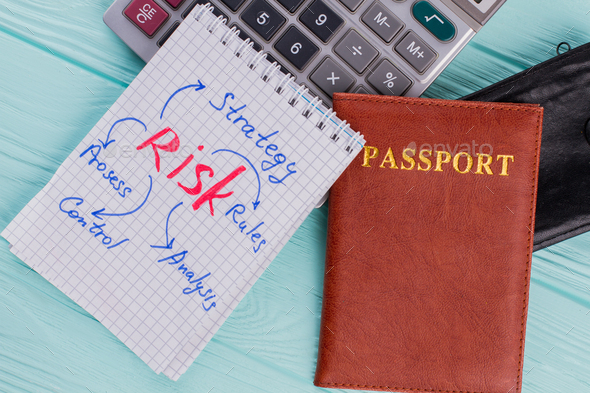 CE/C
5
6
8
9
×
÷
M-
M+
%
√
Strategy
Risk
Prosess
Rules
Control
Analysis
PASSPORT